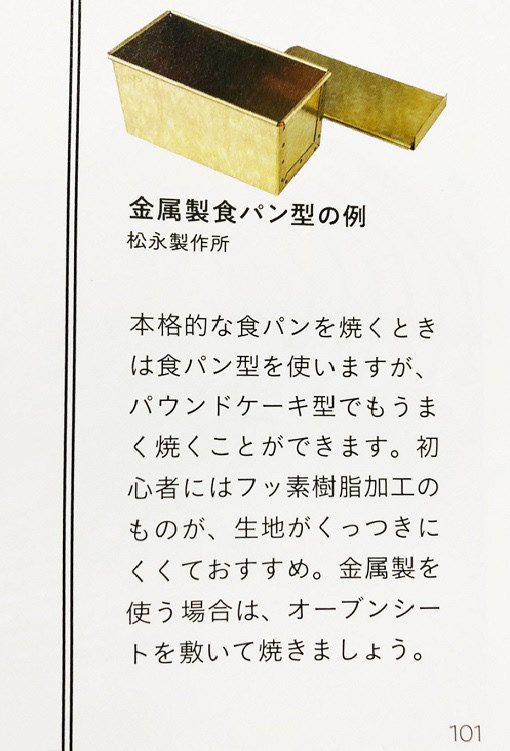 金属製食パン型の例
松永製作所
本格的な食パンを焼くとき
は食パン型を使いますが、
パウンドケーキ型でもうま
く焼くことができます。初
心者にはフッ素樹脂加工の
ものが、生地がくっつきに
くくておすすめ。金属製を
使う場合は、オーブンシー
トを敷いて焼きましょう。
101